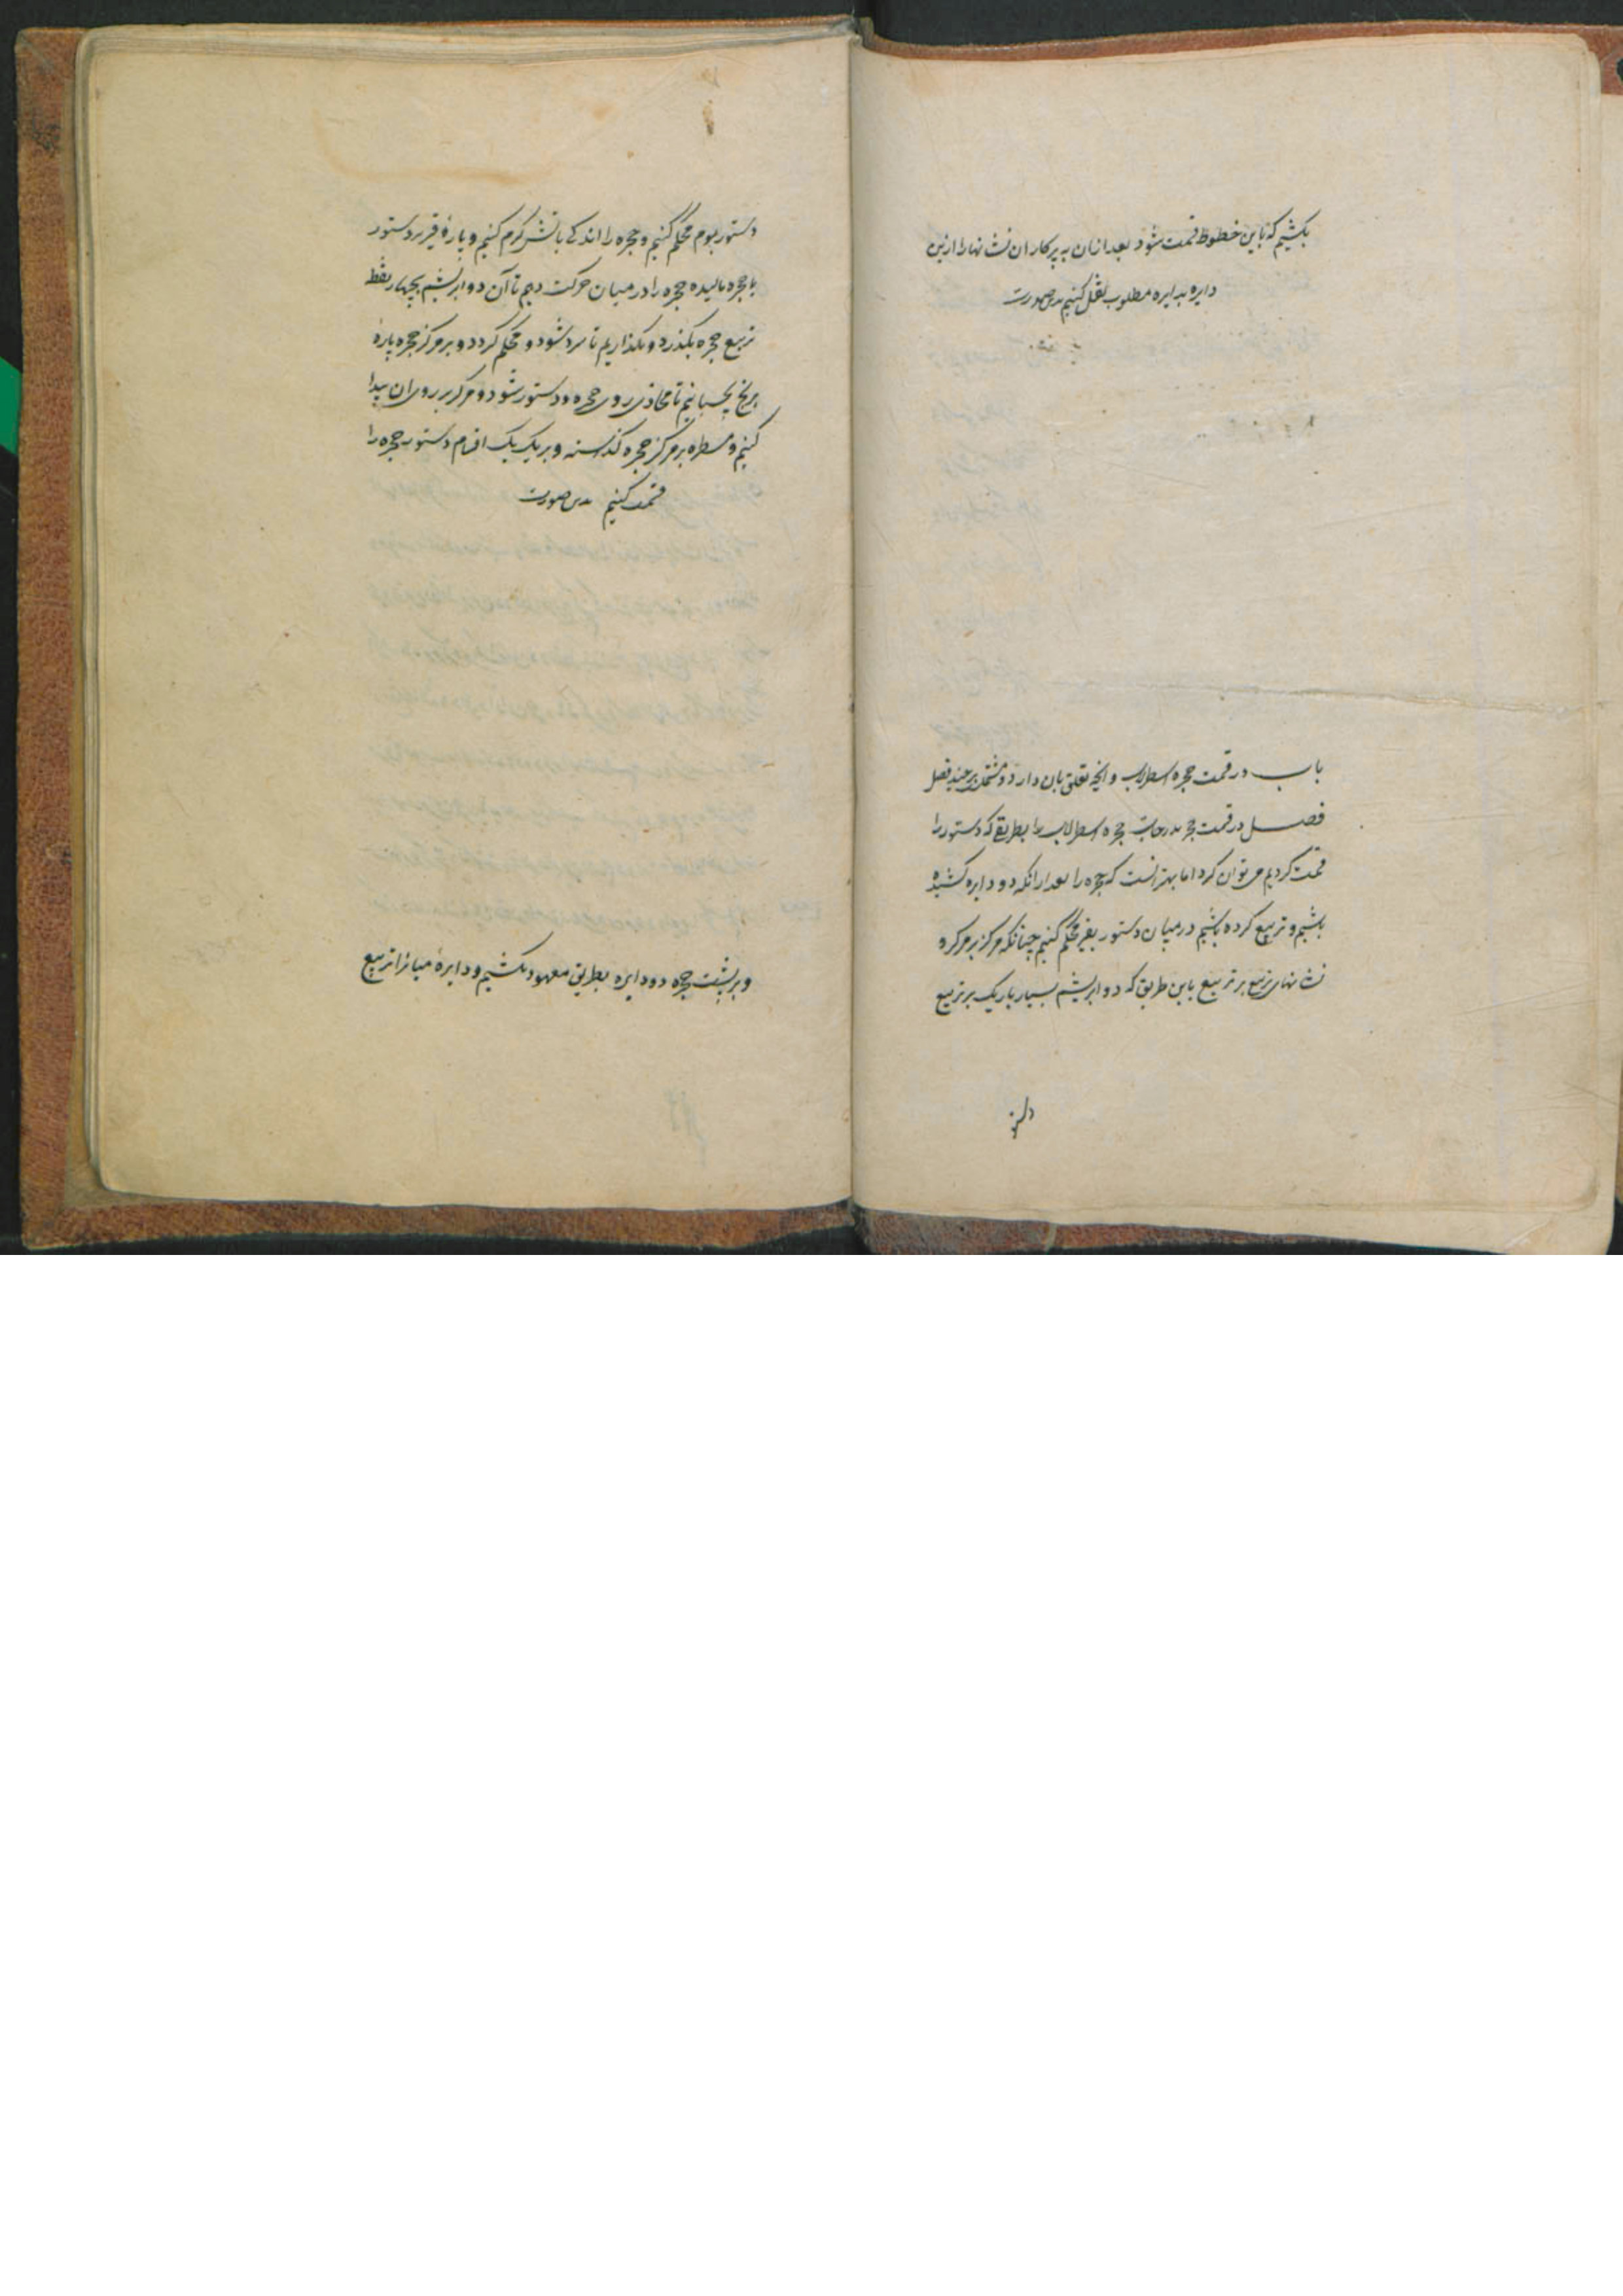 بکشیم که باین خطوط قسمت شود بعد ازان به پرکار ان نشانها را ازین
دایره بدایره مطلوب نقل کنیم بدین صورت
باب در قسمت حجره اسطرلاب و انچه تعلق بان دارد و مشتمل بر چند فصل
فصل در قسمت حجره بدرجات حجره اسطرلاب را بطریقی که دستور را
قسمت کردیم می توان کرد اما بهتر انست که حجره را بعد ازانکه دو دایره کشیده
باشیم و تربیع کرده باشیم در میان دستور بقیر محکم کنیم چنانکه مرکز بر مرکز و
نشانهای تربیع بر تربیع باین طریق که دو ابریشم بسیار باریک بر تربیع
دستور بموم محکم کنیم و حجره را اندکی باتش گرم کنیم و پارهٔ قیر بر دستور
یا حجره مالیده حجره را در میان حرکت دهیم تا آن دو ابریشم بچهار نقط
تربیع حجره بگذرد و بگذاریم تا سرد شود و محکم گردد و بر مرکز حجره پارهٔ
برنج بچسبانیم تا محاذی روی حجره و دستور شود و مرکز بر روی ان پیدا
کنیم و مسطره بر مرکز حجره گذاشته و بر یک یک اقسام دستور حجره را
قسمت کنیم بدین صورت
و بر پشت حجره دو دایره بطریق معهود بکشیم و دایرهٔ میانرا تربیع